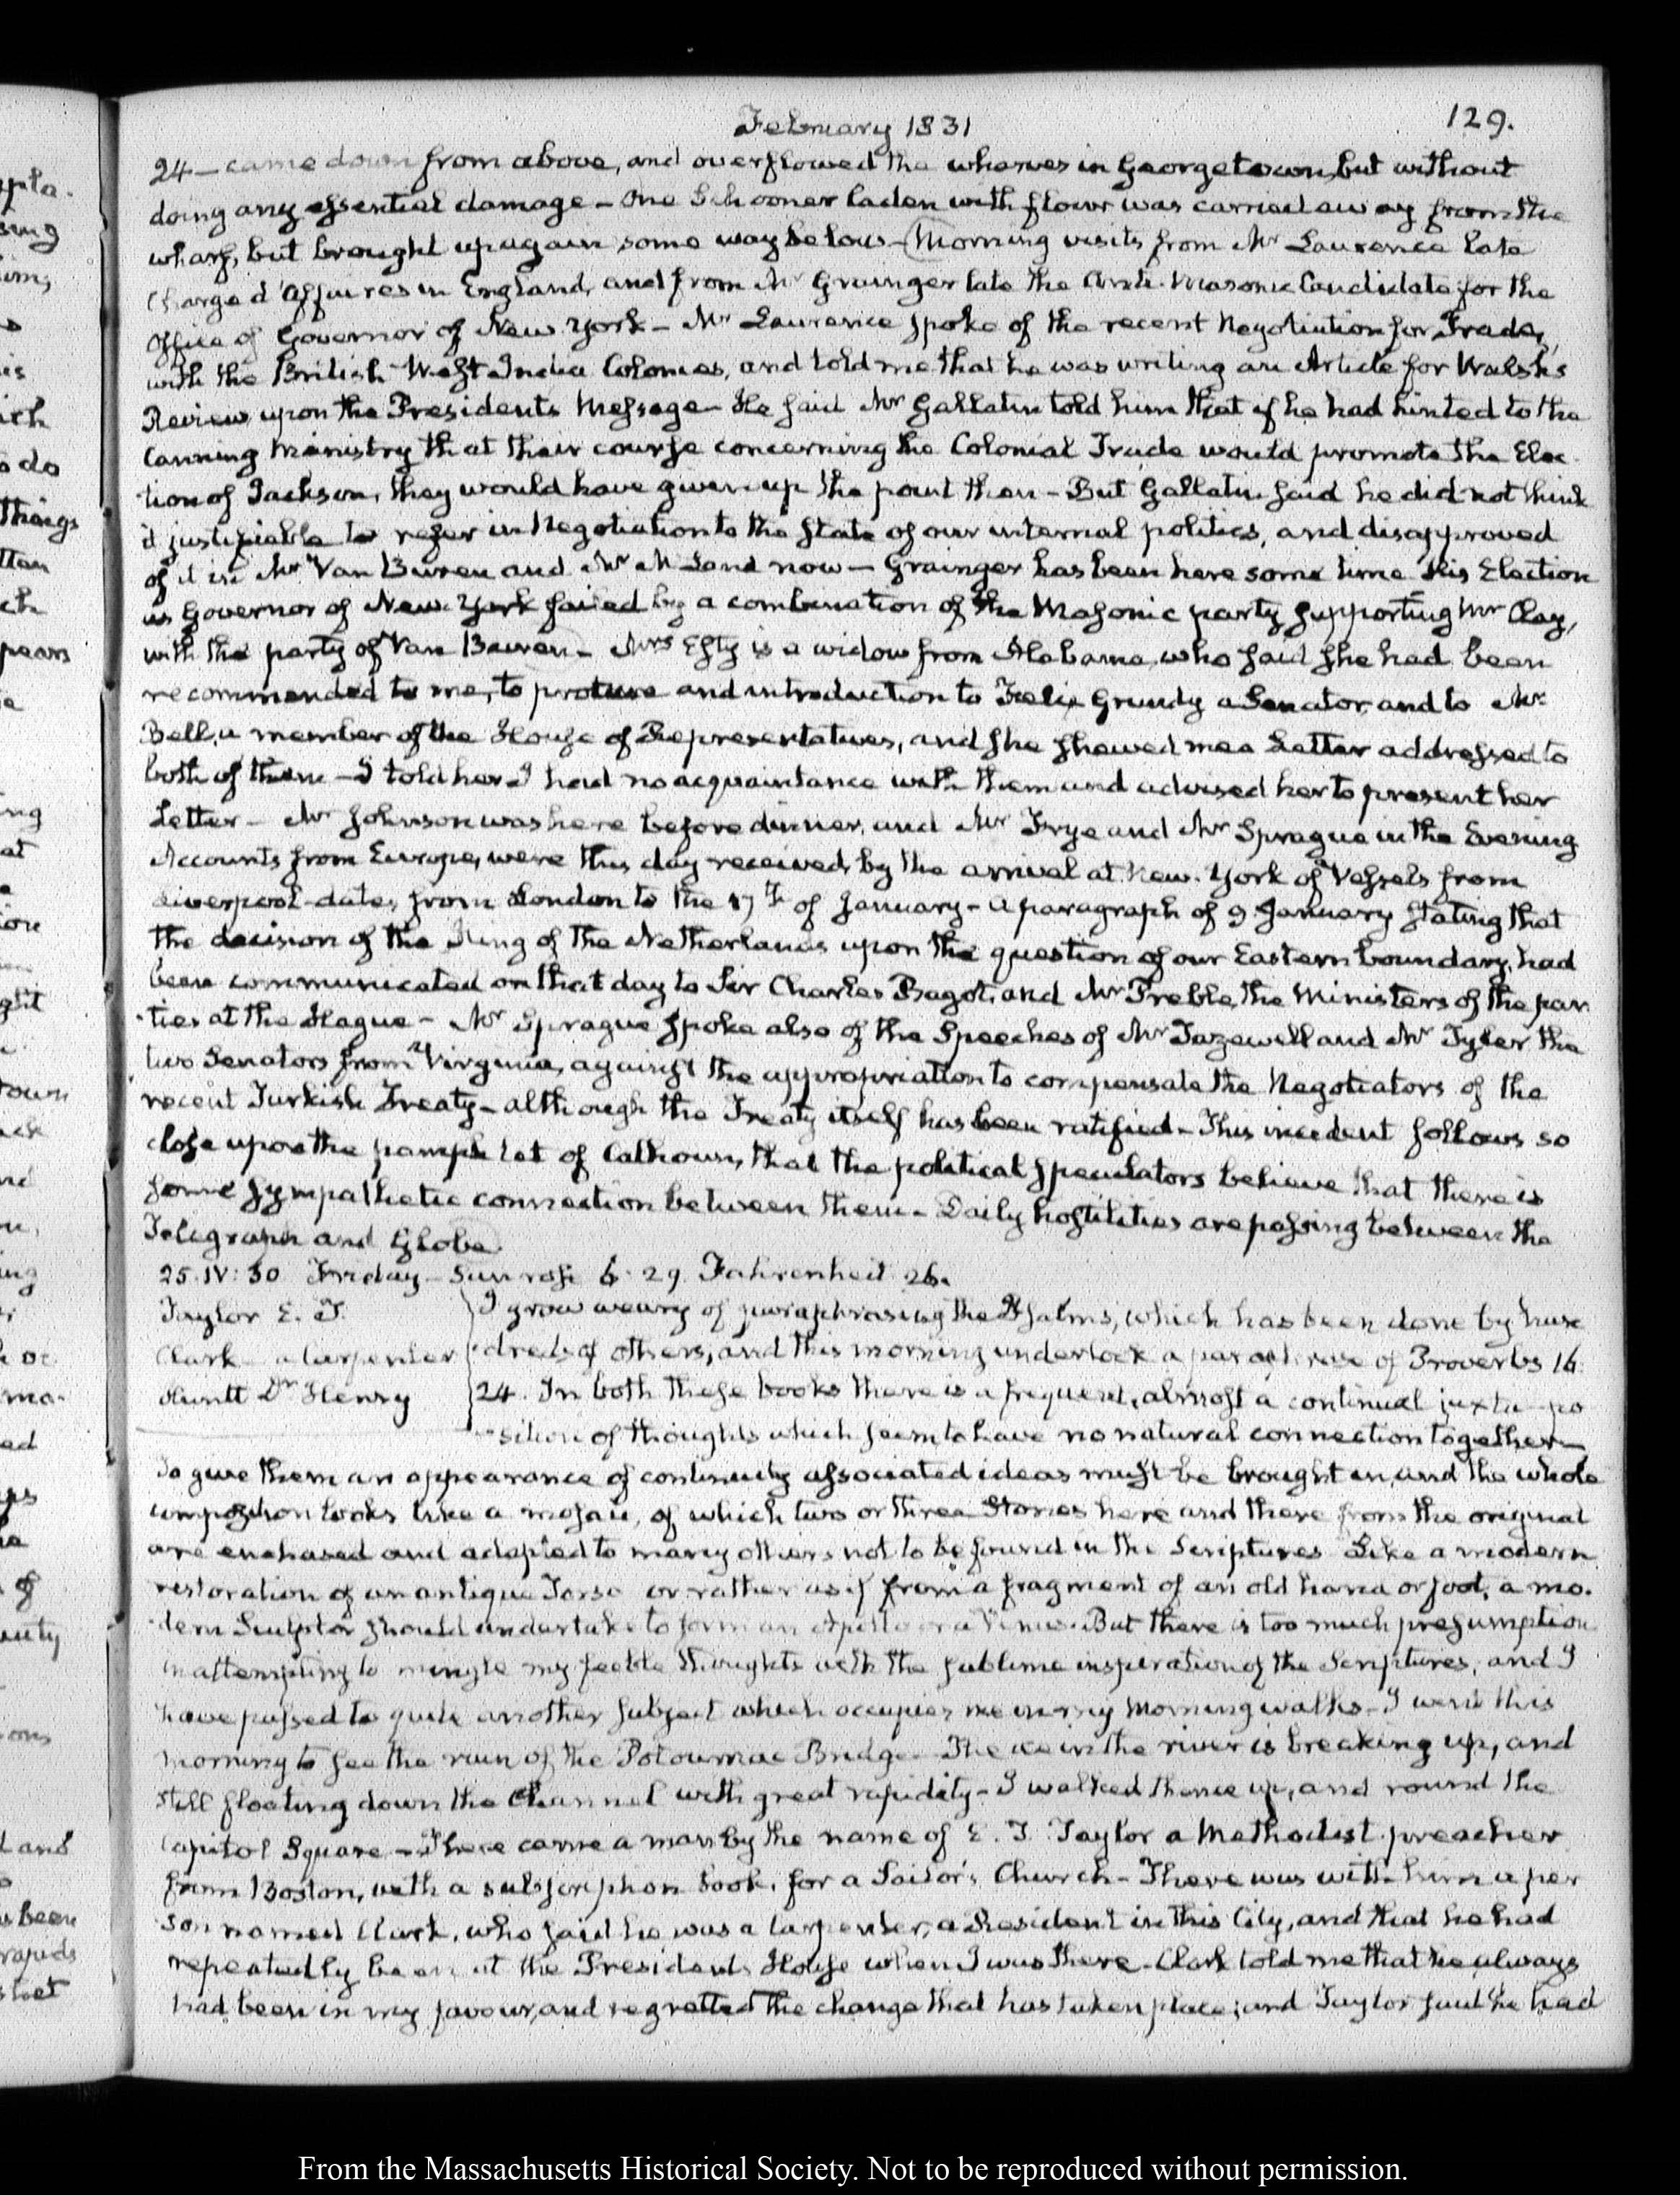 February 1831
129.
24 — came down from above, and overflowed the wharves in Georgetown, but without
doing any essential damage — One Schooner laden with flour was carried away from the
wharf, but brought up again some way below — Morning visits from Mr Lawrence late
Chargé d'Affaires in England, and from Mr Grainger late the Anti-Masonic Candidate for the
Office of Governor of New York — Mr Lawrence spoke of the recent Negotiation for Trade,
with the British West India Colonies, and told me that he was writing an Article for Walsh's
Review, upon the Presidents Message — He said Mr Gallatin told him that if he had hinted to the
Canning Ministry that their course concerning the Colonial Trade would promote the Elec
-tion of Jackson, they would have given up the point then — But Gallatin said he did not think
it justifiable to refer in Negotiation to the State of our internal politics, and disapproved
of it in Mr Van Buren and Mr McLane now — Grainger has been here some time His Election
as Governor of New-York failed by a combination of the Masonic party supporting Mr Clay,
with the party of Van Buren — Mrs Esty is a widow from Alabama, who said she had been
recommended to me, to procure and introduction to Felix Grundy a Senator, and to Mr
Bell, a member of the House of Representatives, and she shewed me a Letter addressed to
both of them — I told her I had no acquaintance with them and advised her to present her
Letter — Mr Johnson was here before dinner, and Mr Frye and Mr Sprague in the Evening
Accounts from Europe, were this day received, by the arrival at New-York of Vessels from
Liverpool — dates from London to the 17th of January — a paragraph of 9 January stating that
the decision of the King of the Netherlands upon the question of our Eastern boundary, had
been communicated on that day to Sir Charles Bagot, and Mr Preble, the Ministers of the par
-ties at the Hague — Mr Sprague spoke also of the Speeches of Mr Tazewell and Mr Tyler the
two Senators from Virginia, against the appropriation to compensate the Negotiators of the
recent Turkish Treaty — although the Treaty itself has been ratified — This incident follows so
close upon the pamphlet of Calhoun, that the political speculators believe that there is
some sympathetic connection between them — Daily hostilities are passing between the
Telegraph and Globe.
25. IV:30 Friday — Sun rose 6:29. Fahrenheit 26.
Taylor E. T.
Clark a Carpenter
Huntt Dr Henry
I grow weary of paraphrasing the Psalms, which has been done by hun
-dreds of others, and this morning undertook a paraphrase of Proverbs 16:
24. In both these books there is a frequent, almost a continual juxta-po
-sition of thoughts which seem to have no natural connection together —
To give them an appearance of continuity associated ideas must be brought in, and the whole
composition looks like a mosaic, of which two or three Stones here and there from the original
are enchased and adapted to many others not to be found in the Scriptures Like a modern
restoration of an antique Torso or rather as if from a fragment of an old hand or foot, a mo.
-dern Sculptor should undertake to form an Apollo or a Venus. But there is too much presumption
in attempting to mingle my feeble thoughts with the sublime inspiration of the Scriptures, and I
have passed to quite another subject which occupies me in my morning walks — I went this
morning to see the ruin of the Potowmac Bridge — The ice in the river is breaking up, and
still floating down the Channel with great rapidity — I walked thence up, and round the
Capitol Square — There came a man by the name of E. T. Taylor a Methodist preacher
from Boston, with a subscription book, for a Sailor's Church — There was with him a per
son named Clark, who said he was a Carpenter, a Resident in this City, and that he had
repeatedly been at the Presidents House when I was there — Clark told me that he always
had been in my favour, and regretted the change that has taken place; and Taylor said he had
From the Massachusetts Historical Society. Not to be reproduced without permission.